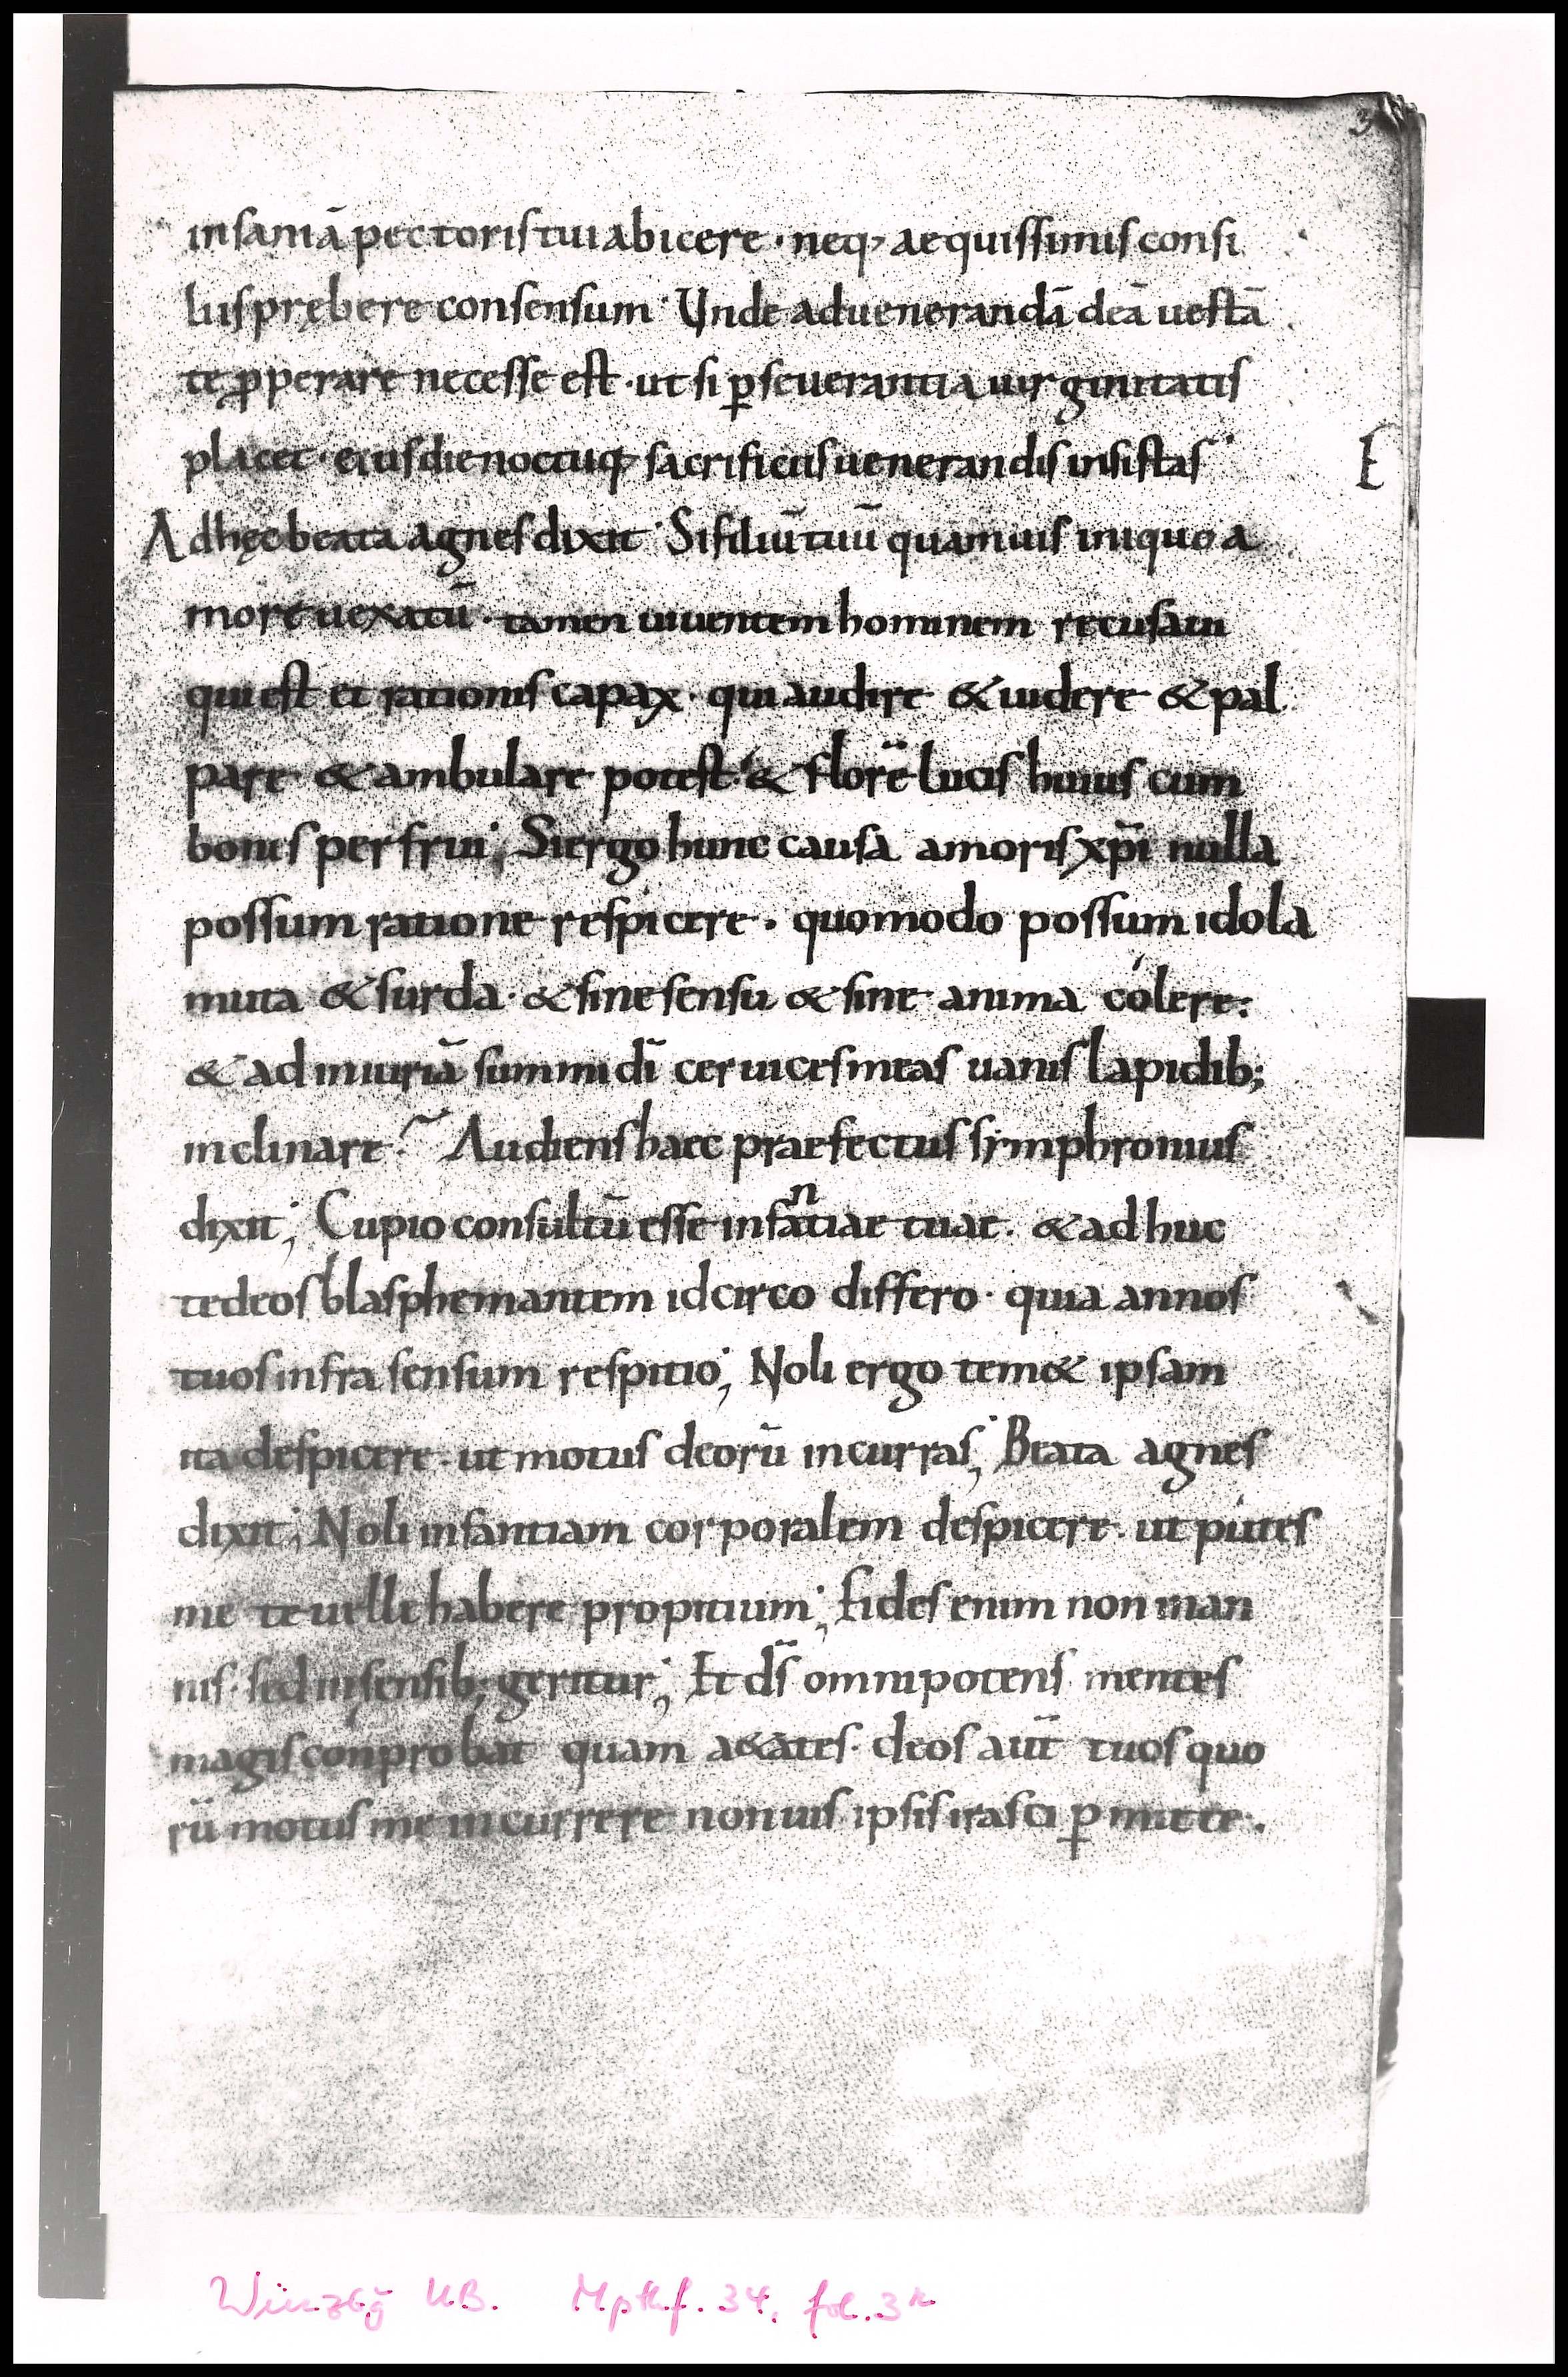 3
insaniā pectoris tui abicere · neq; aequissimis consi
liis prębere consensum · Unde ad uenerandā deā uestā
te ꝓperare necesse est · ut si ꝑseuerantia uirginitatis
placet · eius die noctuq; sacrificiis uenerandis insistas ·
E
Ad hęc beata agnes dixit · Si filiū tuū quamuis iniquo a
more uexatū · tamen uiuentem hominem recusaui
qui est et rationis capax · qui audire & uidere & pal
pare & ambulare potest · & florē lucis huius cum
bonis perfrui; Si ergo hunc causa amoris xp̄i nulla
possum ratione respicere · quomodo possum idola
muta & surda · & sine sensu & sine anima cólere:
& ad iniuriā summi dī ceruices meas uanis lapidib;
inclinare? Audiens haec praefectus simphronius
dixit; Cupio consultū esse infaⁿtiae tuae · & adhuc
te deos blasphemantem idcirco differo · quia annos
tuos infra sensum respitio; Noli ergo tem& ipsam
ita despicere · ut motus deorū incurras; Beata agnes
dixit; Noli infantiam corporalem despicere · ut pútes
me te uelle habere propitium; Fides enim non in an
nis · sed in sensib; geritur; Et d̄s omnipotens mentes
magis conprobat quam a&ates · deos aūt tuos quo
rū motus me incurrere non uis ipsis irasci ꝑmitte ·
Würzbg UB. Mpthf. 34, fol. 3r